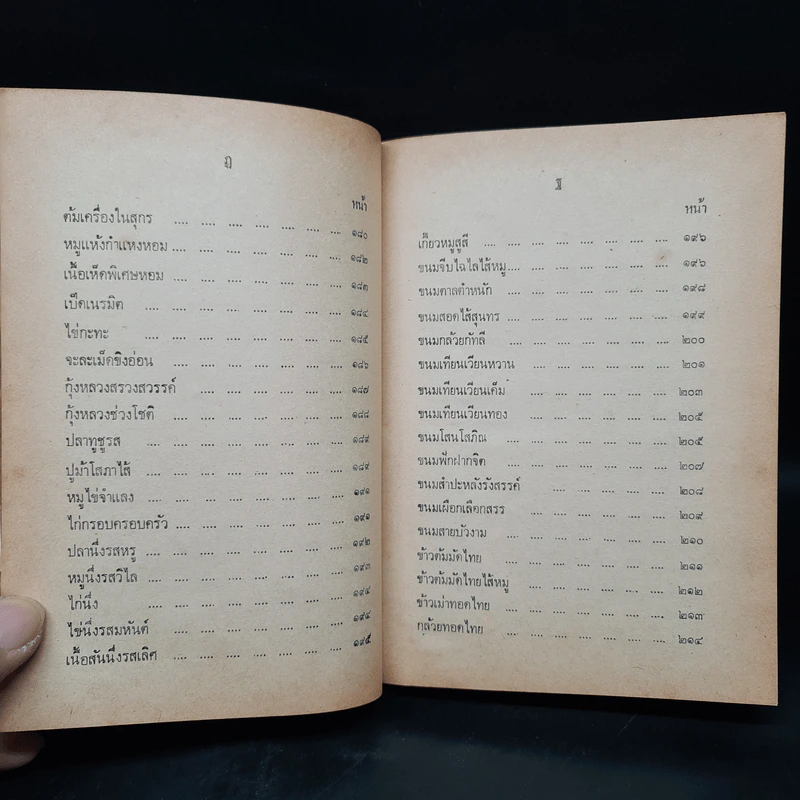 ฎ
หน้า
ต้มเครื่องในสุกร .... .... .... .... .... .... .... ๑๘๐
หมูแห้งกำแหงหอม .... .... .... .... .... .... ๑๘๒
เนื้อเห็ดพิเศษหอม .... .... .... .... .... .... ๑๘๓
เป็ดเนรมิต .... .... .... .... .... .... .... ๑๘๔
ไข่กะทะ .... .... .... .... .... .... .... ๑๘๕
จะละเม็ดขิงอ่อน .... .... .... .... .... .... ๑๘๖
กุ้งหลวงสรวงสวรรค์ .... .... .... .... .... .... ๑๘๗
กุ้งหลวงช่วงโชติ .... .... .... .... .... .... ๑๘๘
ปลาทูชูรส .... .... .... .... .... .... .... ๑๘๙
ปูม้าโสภาไส้ .... .... .... .... .... .... .... ๑๘๙
หมูไข่จำแลง .... .... .... .... .... .... .... ๑๙๑
ไก่กรอบครอบครัว .... .... .... .... .... .... ๑๙๑
ปลานึ่งรสหรู .... .... .... .... .... .... .... ๑๙๒
หมูนึ่งรสวิไล .... .... .... .... .... .... .... ๑๙๓
ไก่นึ่ง .... .... .... .... .... .... .... ๑๙๔
ไข่นึ่งรสมหันต์ .... .... .... .... .... .... ๑๙๔
เนื้อสันนึ่งรสเลิศ .... .... .... .... .... .... ๑๙๕
ฐ
หน้า
เกี๊ยวหมูสูสี .... .... .... .... .... .... .... ๑๙๖
ขนมจีบไฉไลไส้หมู .... .... .... .... .... .... ๑๙๖
ขนมตาลตำหนัก .... .... .... .... .... .... ๑๙๘
ขนมสอดไส้สุนทร .... .... .... .... .... .... ๑๙๙
ขนมกล้วยกัทลี .... .... .... .... .... .... ๒๐๐
ขนมเทียนเวียนหวาน .... .... .... .... .... .... ๒๐๑
ขนมเทียนเวียนเค็ม .... .... .... .... .... .... ๒๐๓
ขนมเทียนเวียนทอง .... .... .... .... .... .... ๒๐๕
ขนมโสนโสภิณ .... .... .... .... .... .... ๒๐๕
ขนมฟักฝากจิต .... .... .... .... .... .... ๒๐๗
ขนมสำปะหลังรังสรรค์ .... .... .... .... .... ๒๐๘
ขนมเผือกเลือกสรร .... .... .... .... .... .... ๒๐๙
ขนมสายบัวงาม .... .... .... .... .... .... ๒๑๐
ข้าวต้มมัดไทย .... .... .... .... .... .... ๒๑๑
ข้าวต้มมัดไทยไส้หมู .... .... .... .... .... .... ๒๑๒
ข้าวเม่าทอดไทย .... .... .... .... .... .... ๒๑๓
กล้วยทอดไทย .... .... .... .... .... .... ๒๑๔